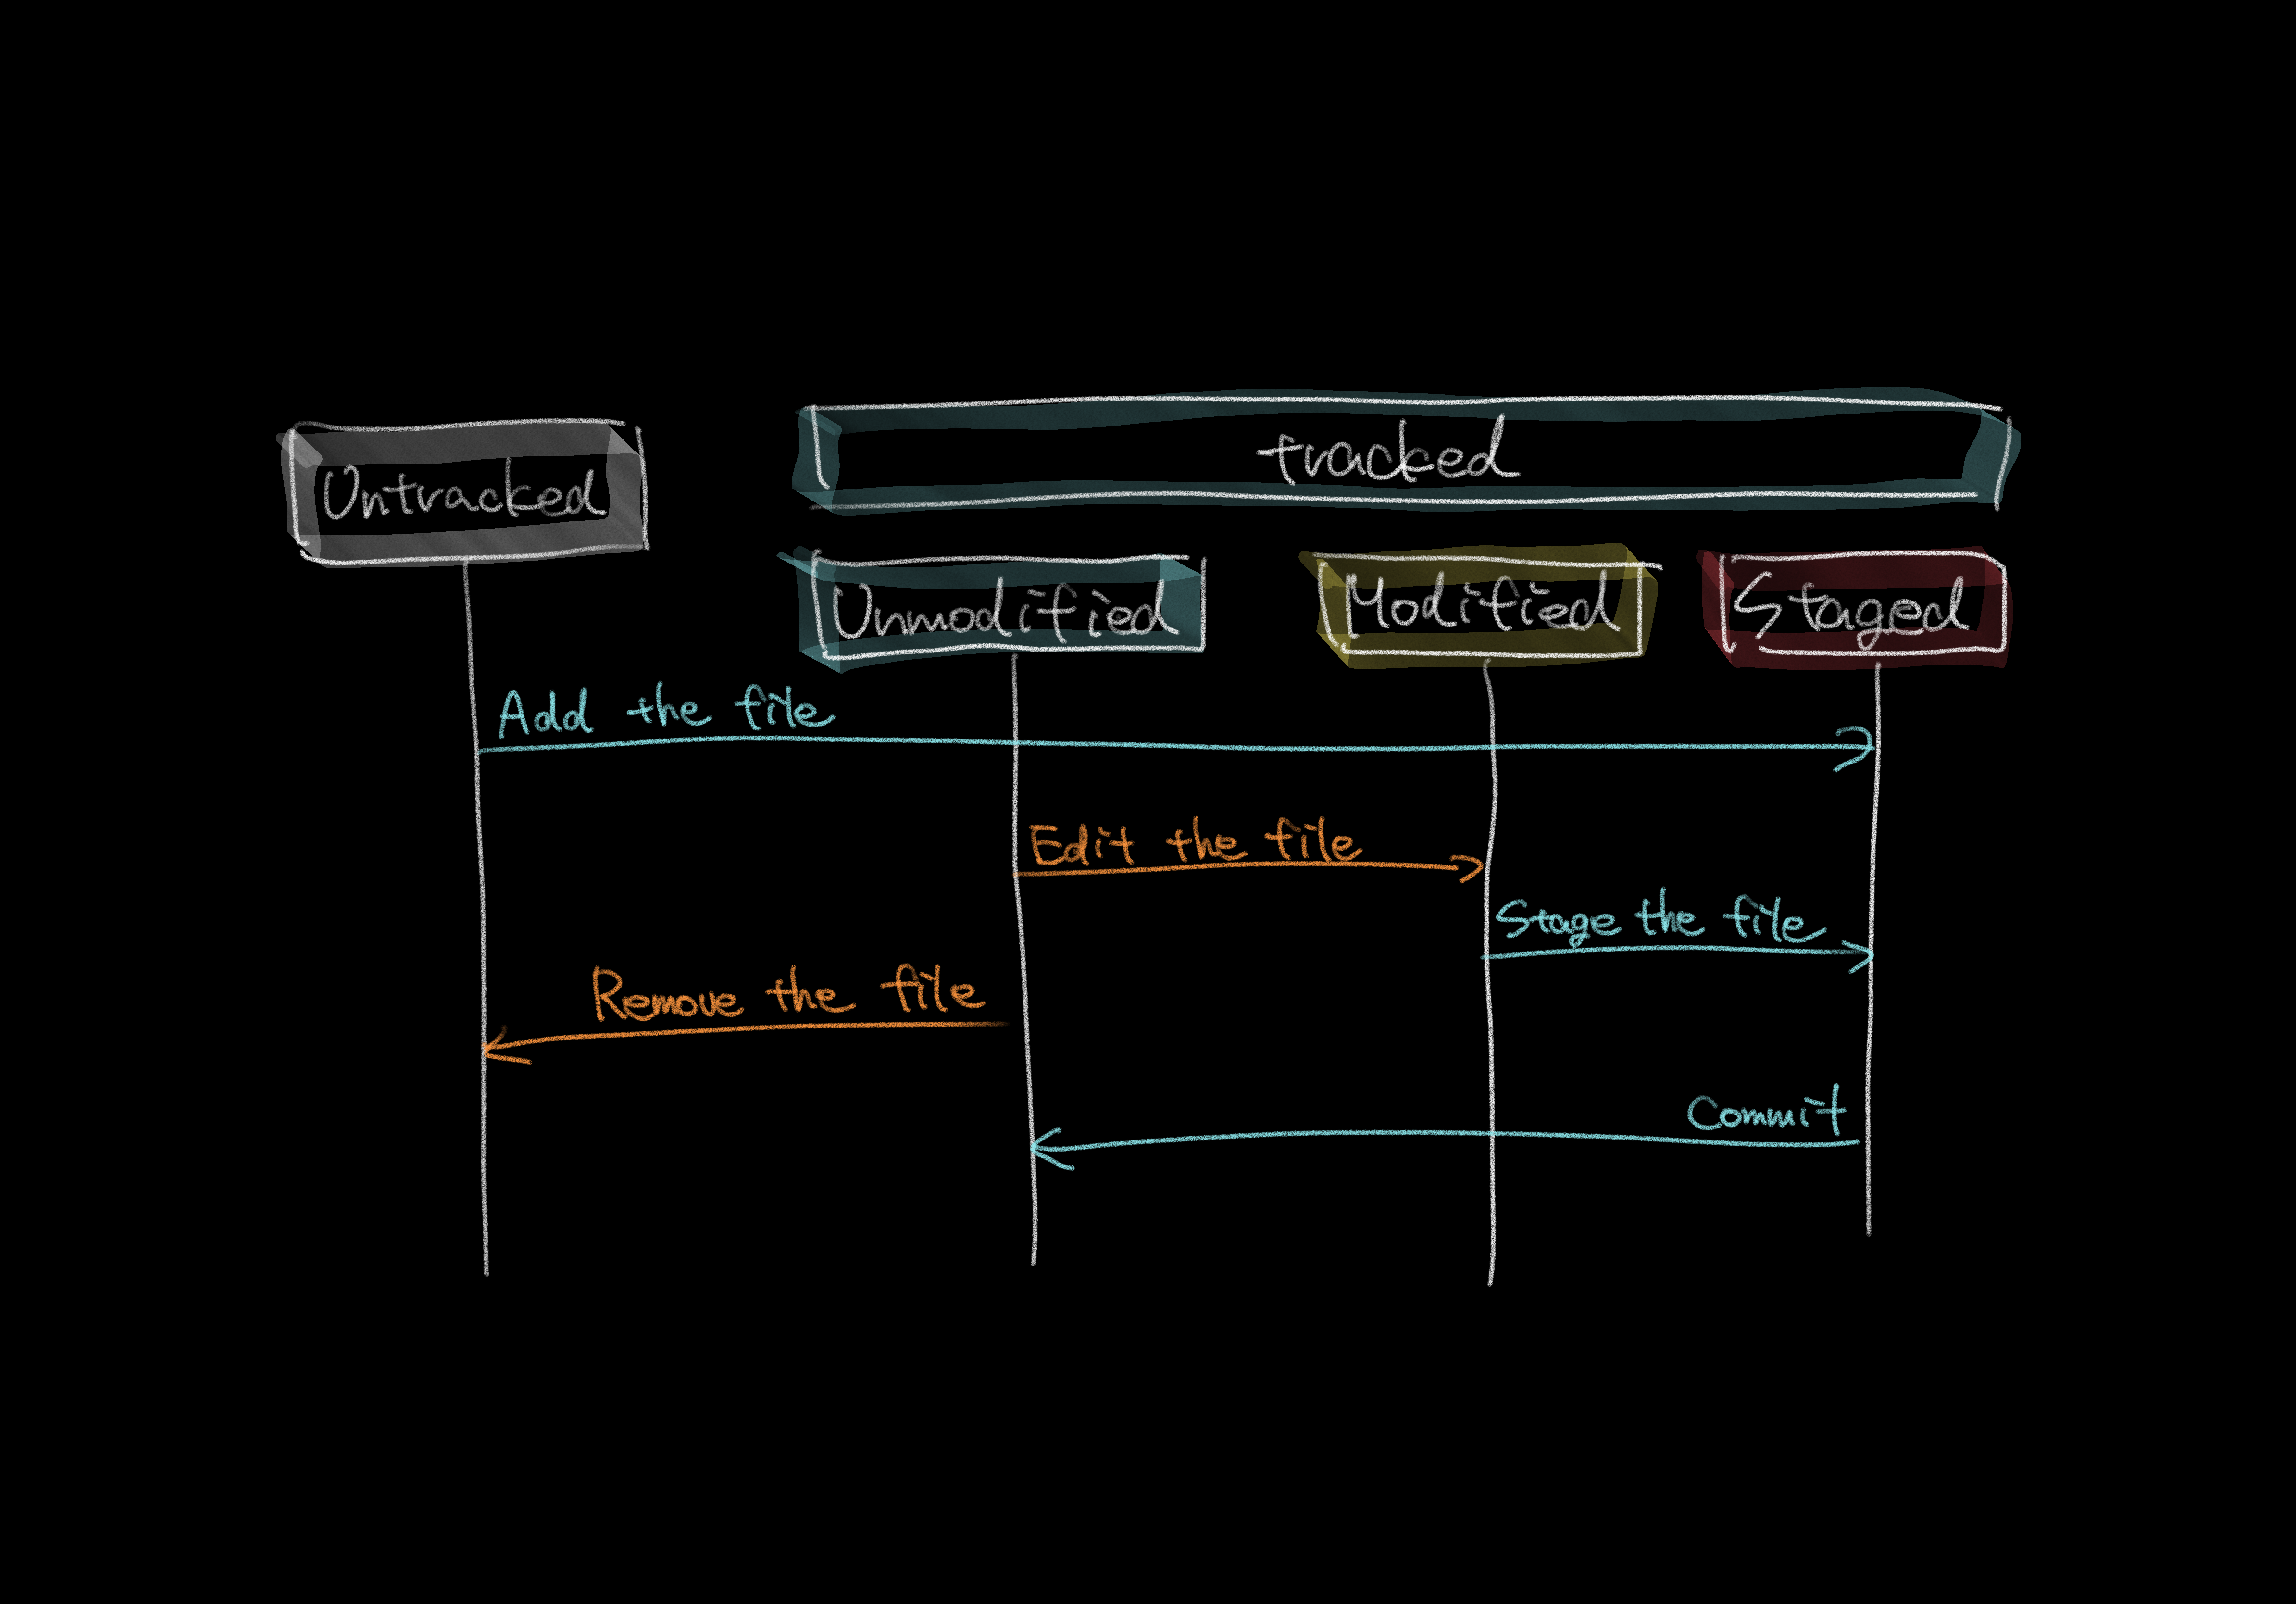 Untracked
tracked
Unmodified
Modified
Staged
Add the file
Edit the file
Stage the file
Remove the file
Commit